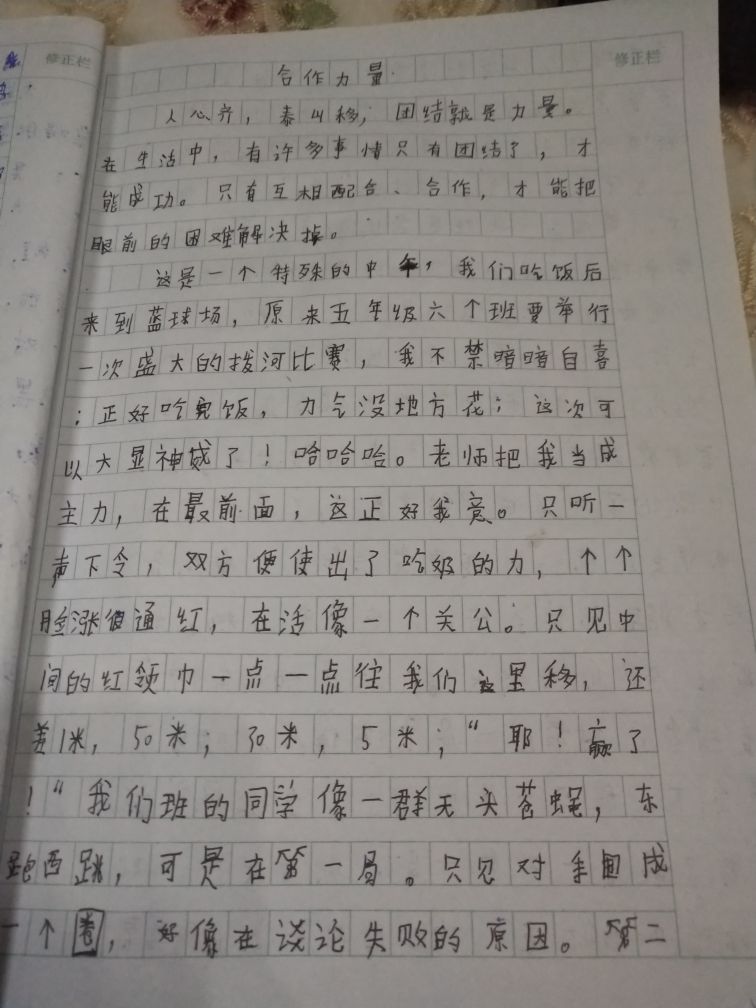 修正栏
修正栏
合作力量
人心齐，泰山移，团结就是力量。
在生活中，有许多事情只有团结了，才
能成功。只有互相配合、合作，才能把
眼前的困难解决掉。
这是一个特殊的中午，我们吃饭后
来到蓝球场，原来五年级六个班要举行
一次盛大的拨河比赛，我不禁暗暗自喜
：正好吃完饭，力气没地方花；这次可
以大显神威了！哈哈哈。老师把我当成
主力，在最前面，这正好我意。只听一
声下令，双方便使出了吃奶的力，个个
脸涨得通红，在活像一个关公。只见中
间的红领巾一点一点往我们这里移，还
差1米，50米；30米，5米；“耶！赢了
！“我们班的同学像一群无头苍蝇，东
跑西跳，可是在第一局。只见对手围成
一个圈，好像在谈论失败的原因。第二